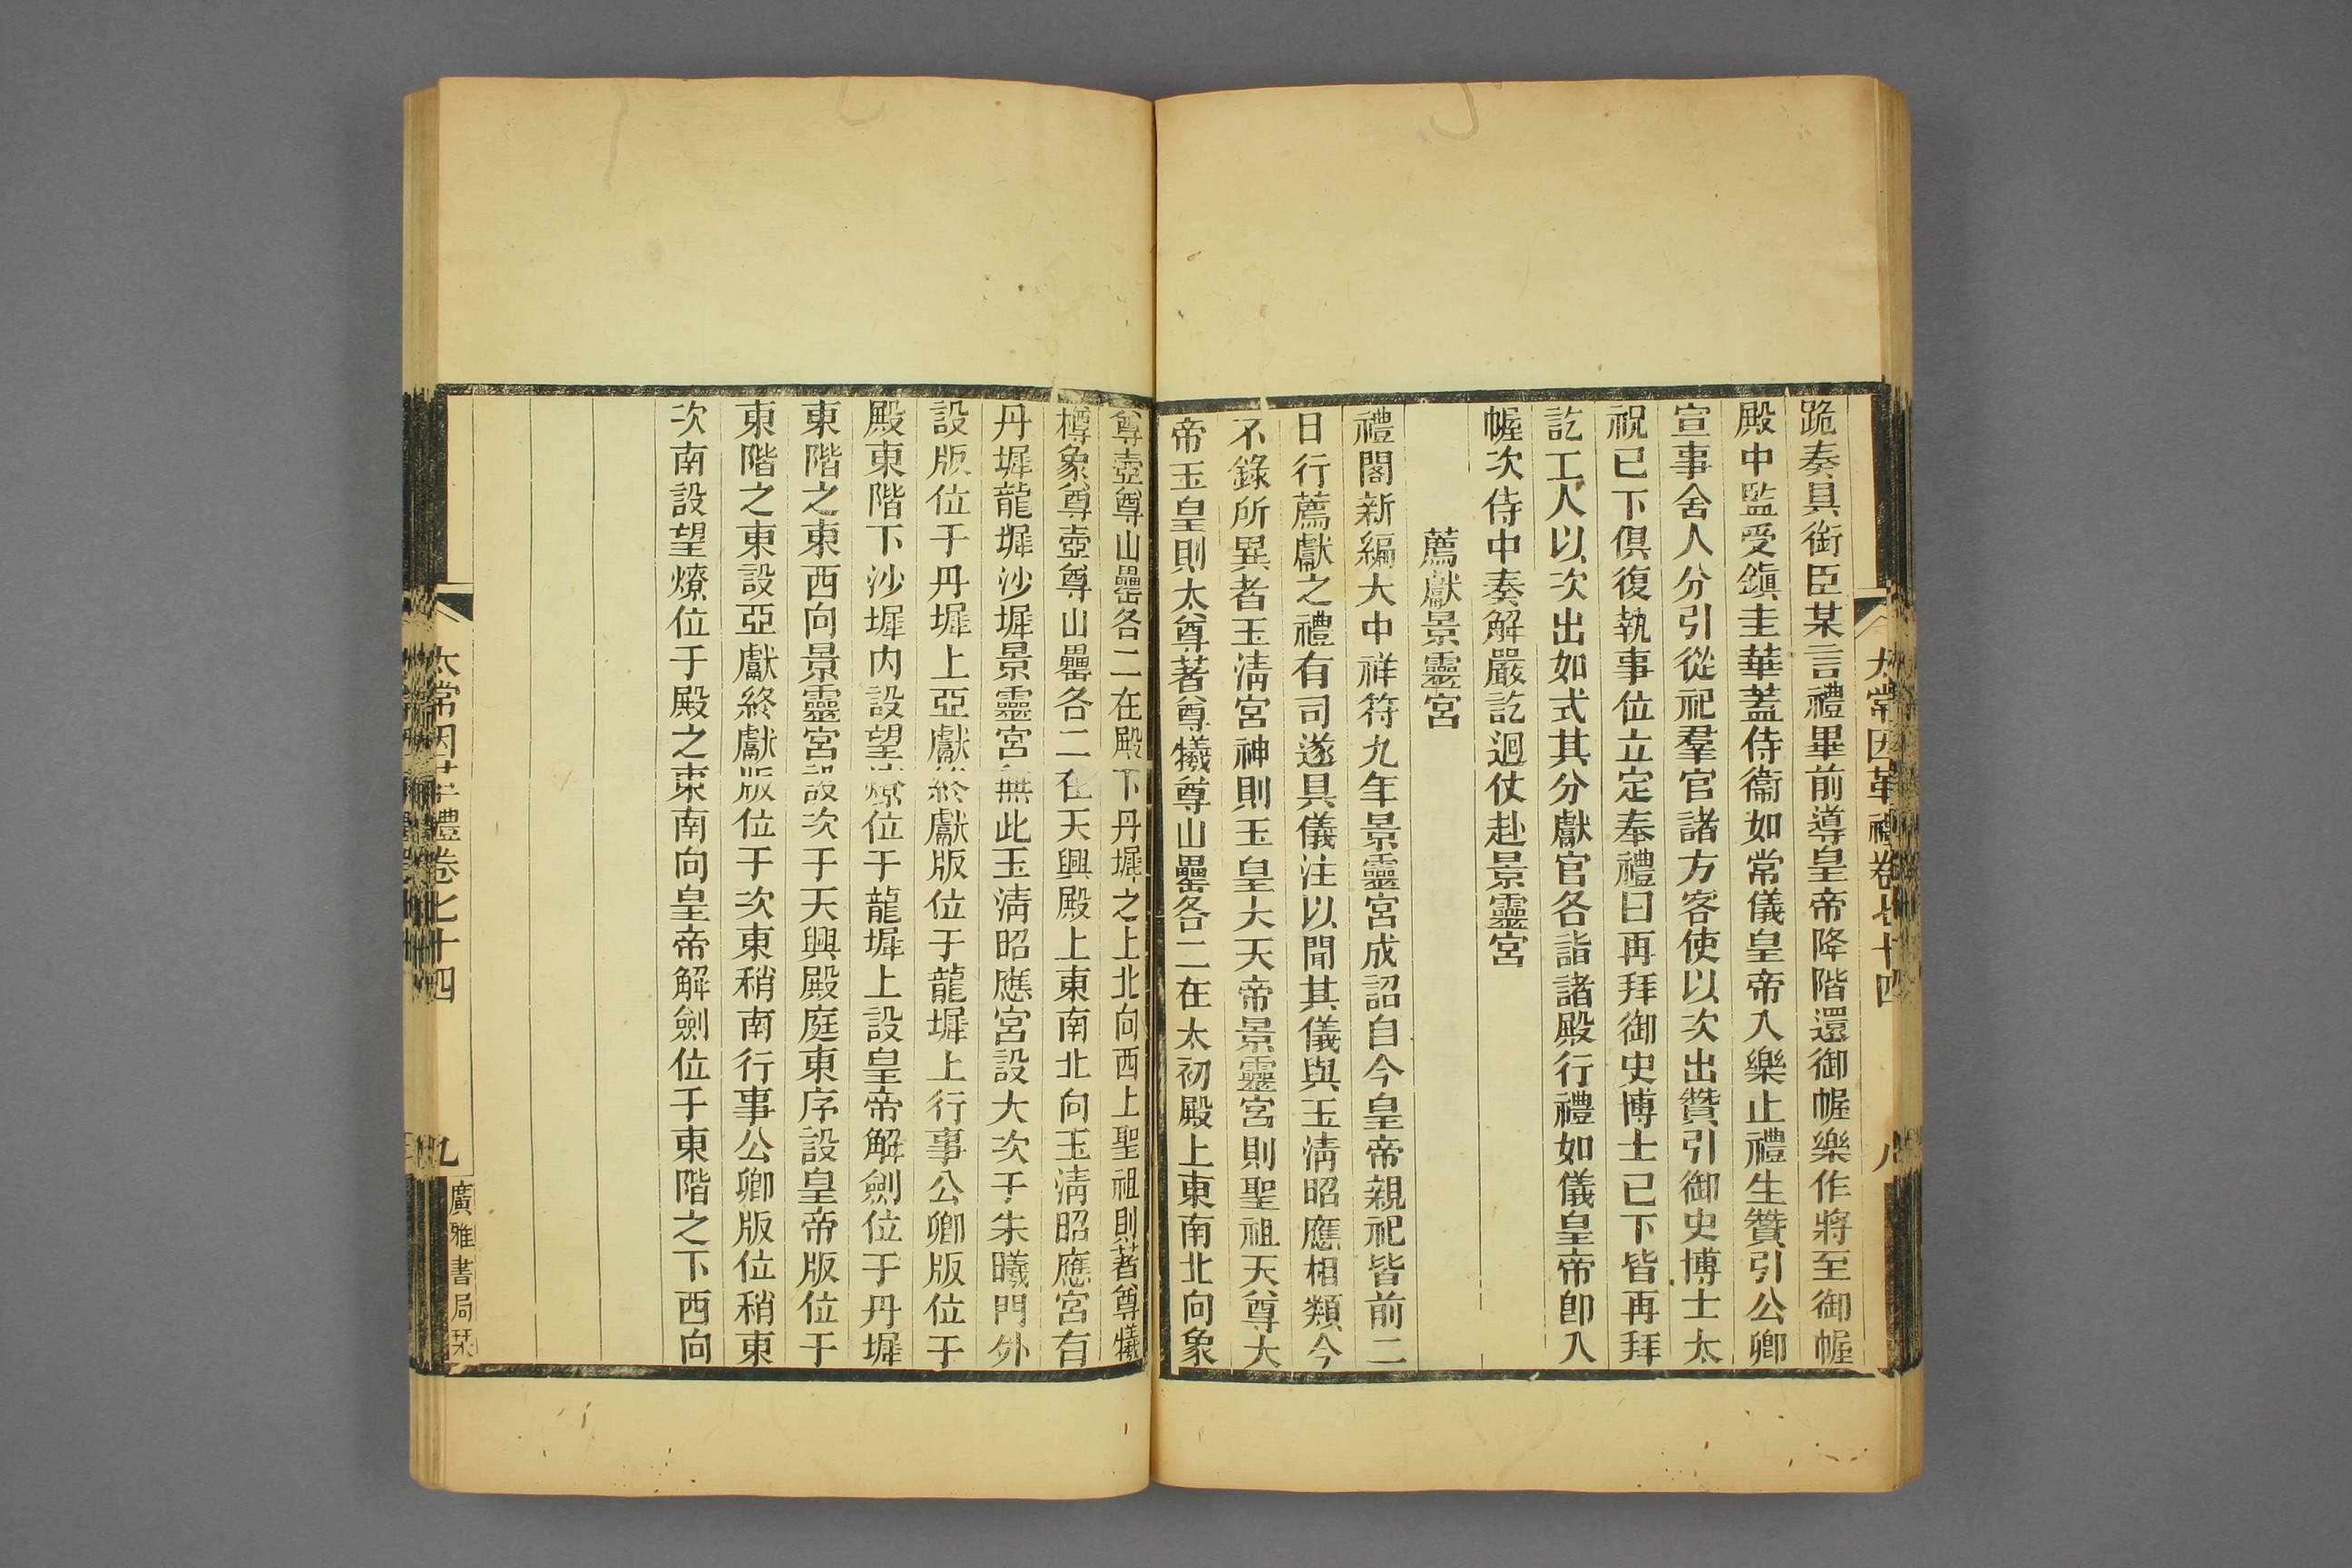 太常因革禮卷七十四
八
跪奏具銜臣某言禮畢前導皇帝降階還御幄樂作將至御幄
殿中監受鎭圭華蓋侍衞如常儀皇帝入樂止禮生贊引公卿
宣事舍人分引從祀羣官諸方客使以次出贊引御史博士太
祝已下俱復執事位立定奉禮曰再拜御史博士已下皆再拜
訖工人以次出如式其分獻官各詣諸殿行禮如儀皇帝卽入
幄次侍中奏解嚴訖迴仗赴景靈宮
薦獻景靈宮
禮閣新編大中祥符九年景靈宮成詔自今皇帝親祀皆前二
日行薦獻之禮有司遂具儀注以聞其儀與玉淸昭應相類今
不錄所異者玉淸宮神則玉皇大天帝景靈宮則聖祖天尊大
帝玉皇則太尊著尊犧尊山罍各二在太初殿上東南北向象
尊壺尊山罍各二在殿下丹墀之上北向西上聖祖則著尊犧
樽象尊壺尊山罍各二在天興殿上東南北向玉淸昭應宮有
丹墀龍墀沙墀景靈宮無此玉淸昭應宮設大次于朱曦門外
設版位于丹墀上亞獻終獻版位于龍墀上行事公卿版位于
殿東階下沙墀內設望燎位于龍墀上設皇帝解劍位于丹墀
東階之東西向景靈宮設次于天興殿庭東序設皇帝版位于
東階之東設亞獻終獻版位于次東稍南行事公卿版位稍東
次南設望燎位于殿之東南向皇帝解劍位于東階之下西向
太常因革禮卷七十四
九
廣雅書局栞